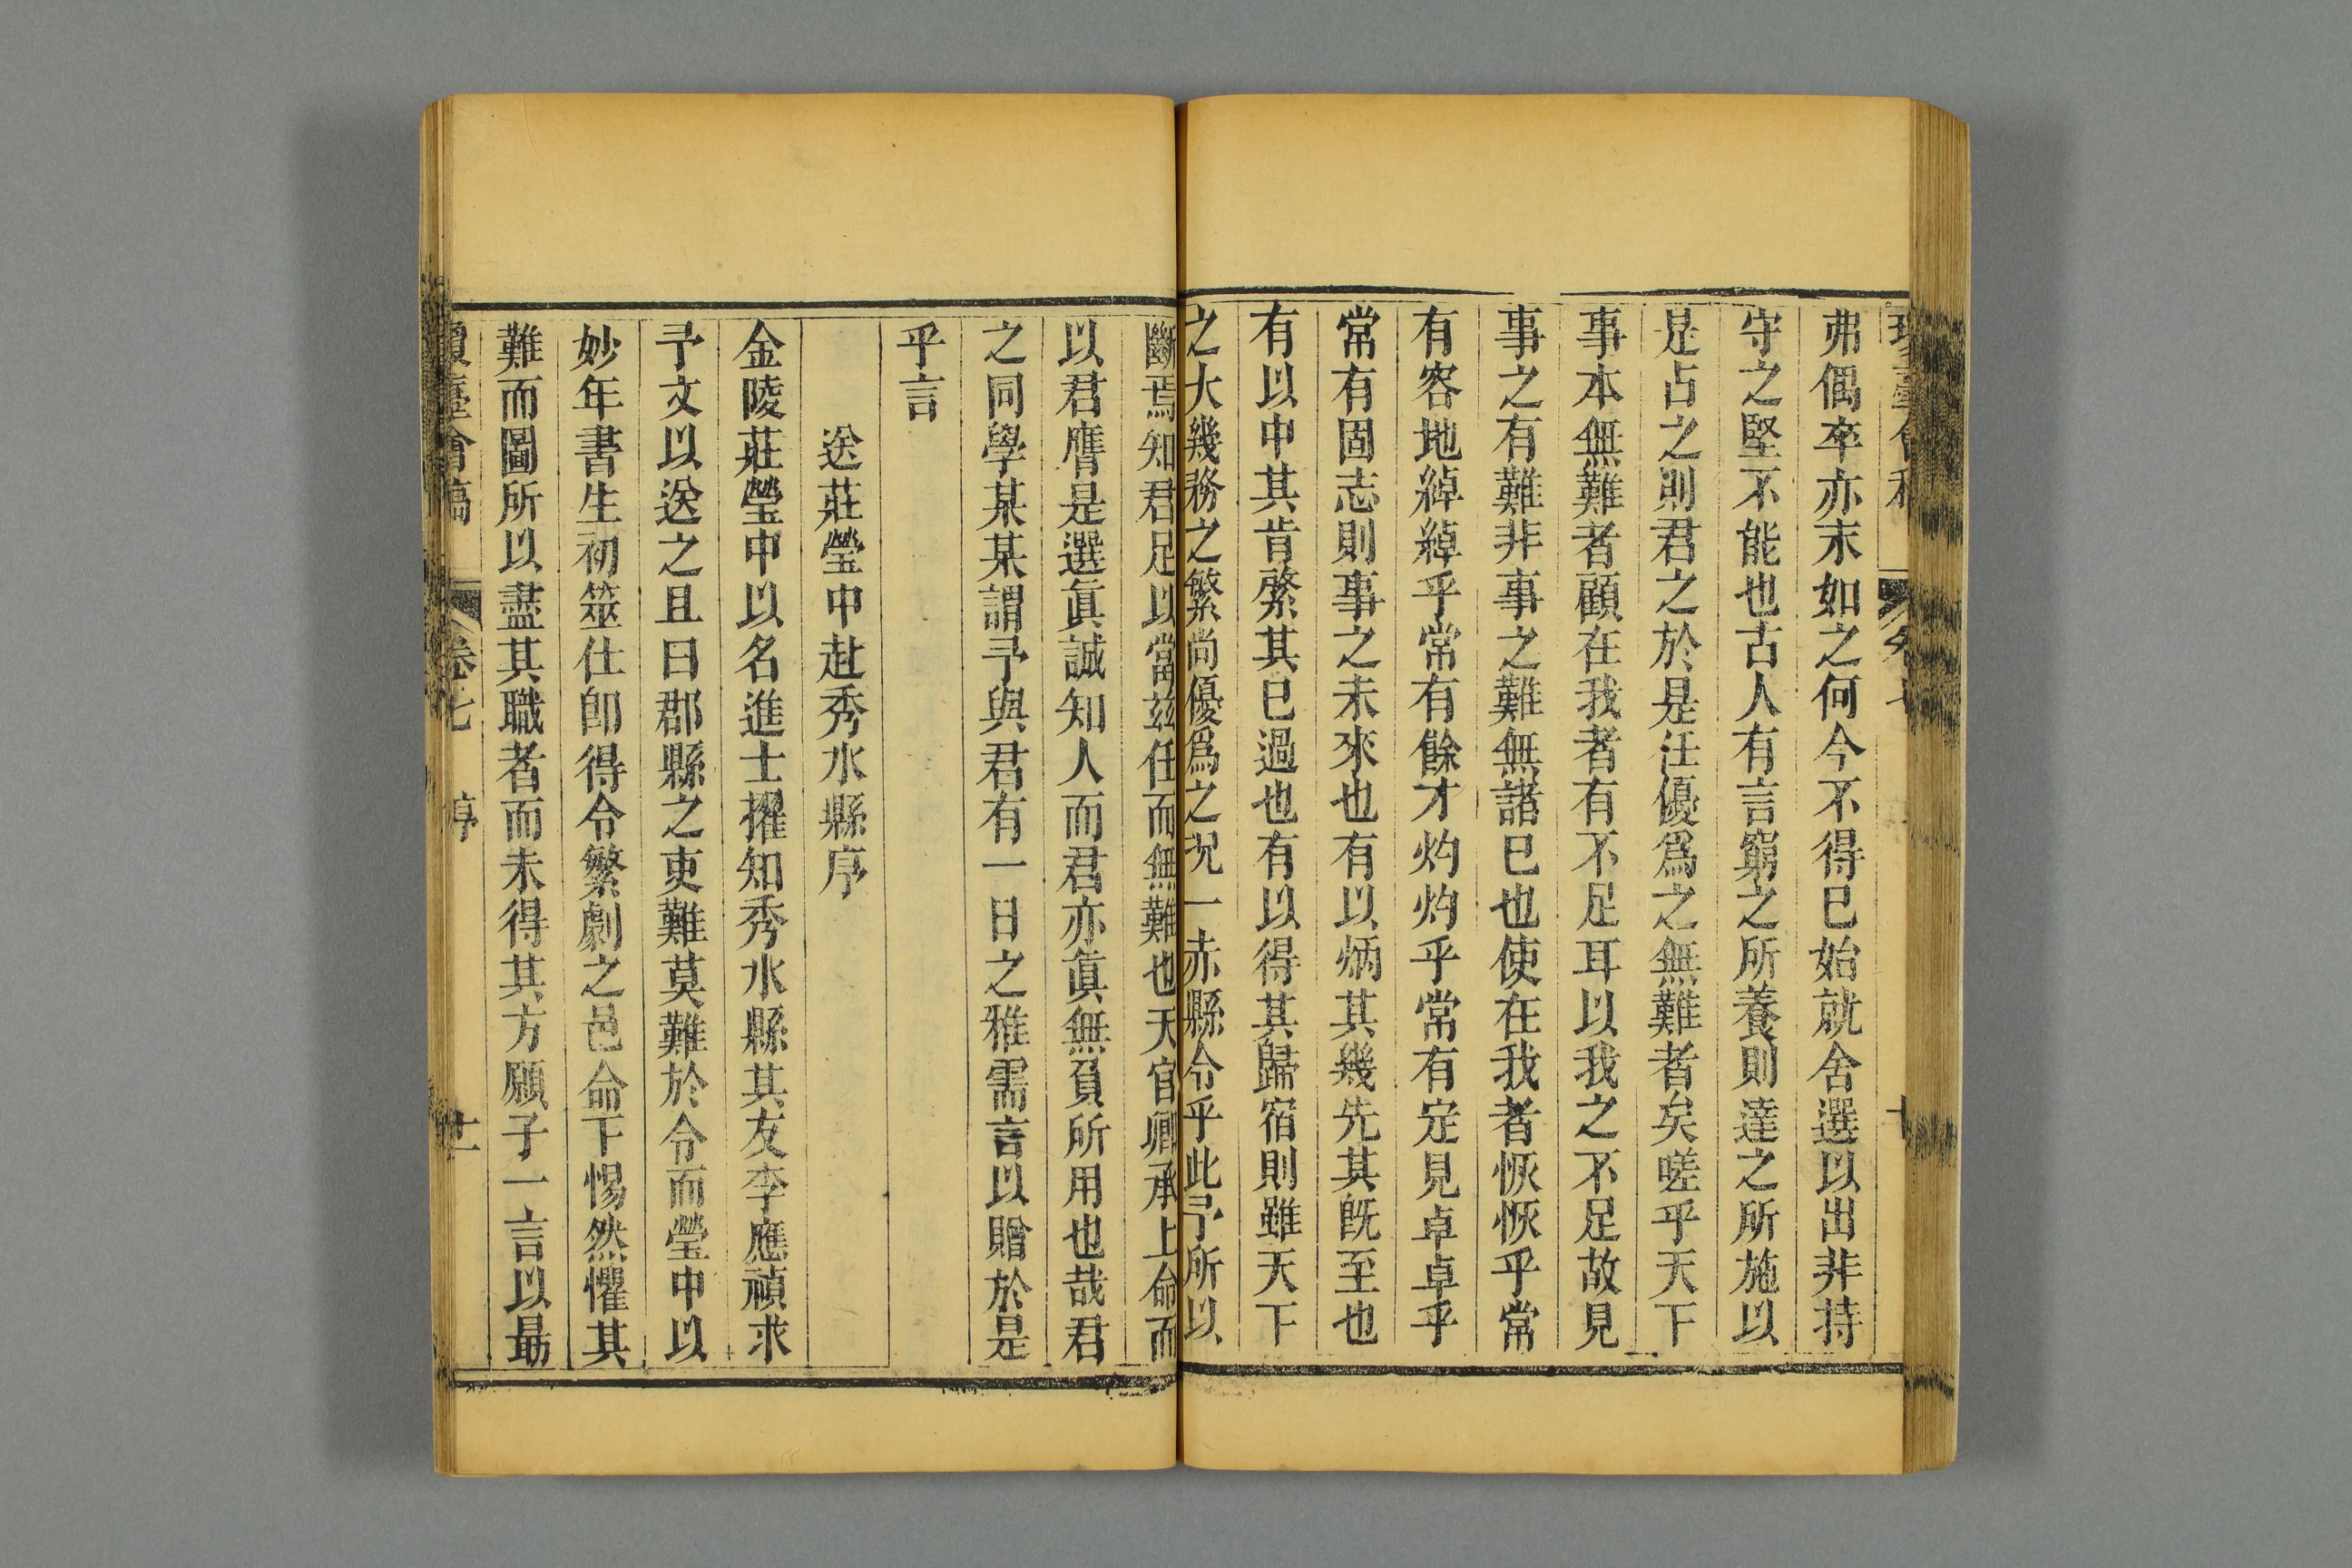 弗偶卒亦末如之何今不得已始就舍選以出非持
守之堅不能也古人有言窮之所養則達之所施以
是占之則君之於是任優爲之無難者矣嗟乎天下
事本無難者顧在我者有不足耳以我之不足故見
事之有難非事之難無諸已也使在我者恢恢乎常
有容地綽綽乎常有餘才灼灼乎常有定見卓卓乎
常有固志則事之未來也有以炳其幾先其旣至也
有以中其肯綮其已過也有以得其歸宿則雖天下
之大幾務之繁尚優爲之況一赤縣令乎此予所以
斷焉知君足以當兹任而無難也天官卿承上命而
以君膺是選眞誠知人而君亦眞無負所用也哉君
之同學某某謂予與君有一日之雅需言以贈於是
乎言
送莊瑩中赴秀水縣序
金陵莊瑩中以名進士擢知秀水縣其友李應禎求
予文以送之且曰郡縣之吏難莫難於令而瑩中以
妙年書生初筮仕卽得令繁劇之邑命下惕然懼其
難而圖所以盡其職者而未得其方願子一言以最
瓊臺會稿 卷七 序 十一